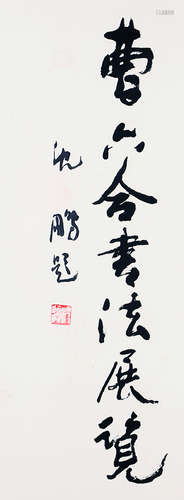 曹六合書法展覽
沈鹏题